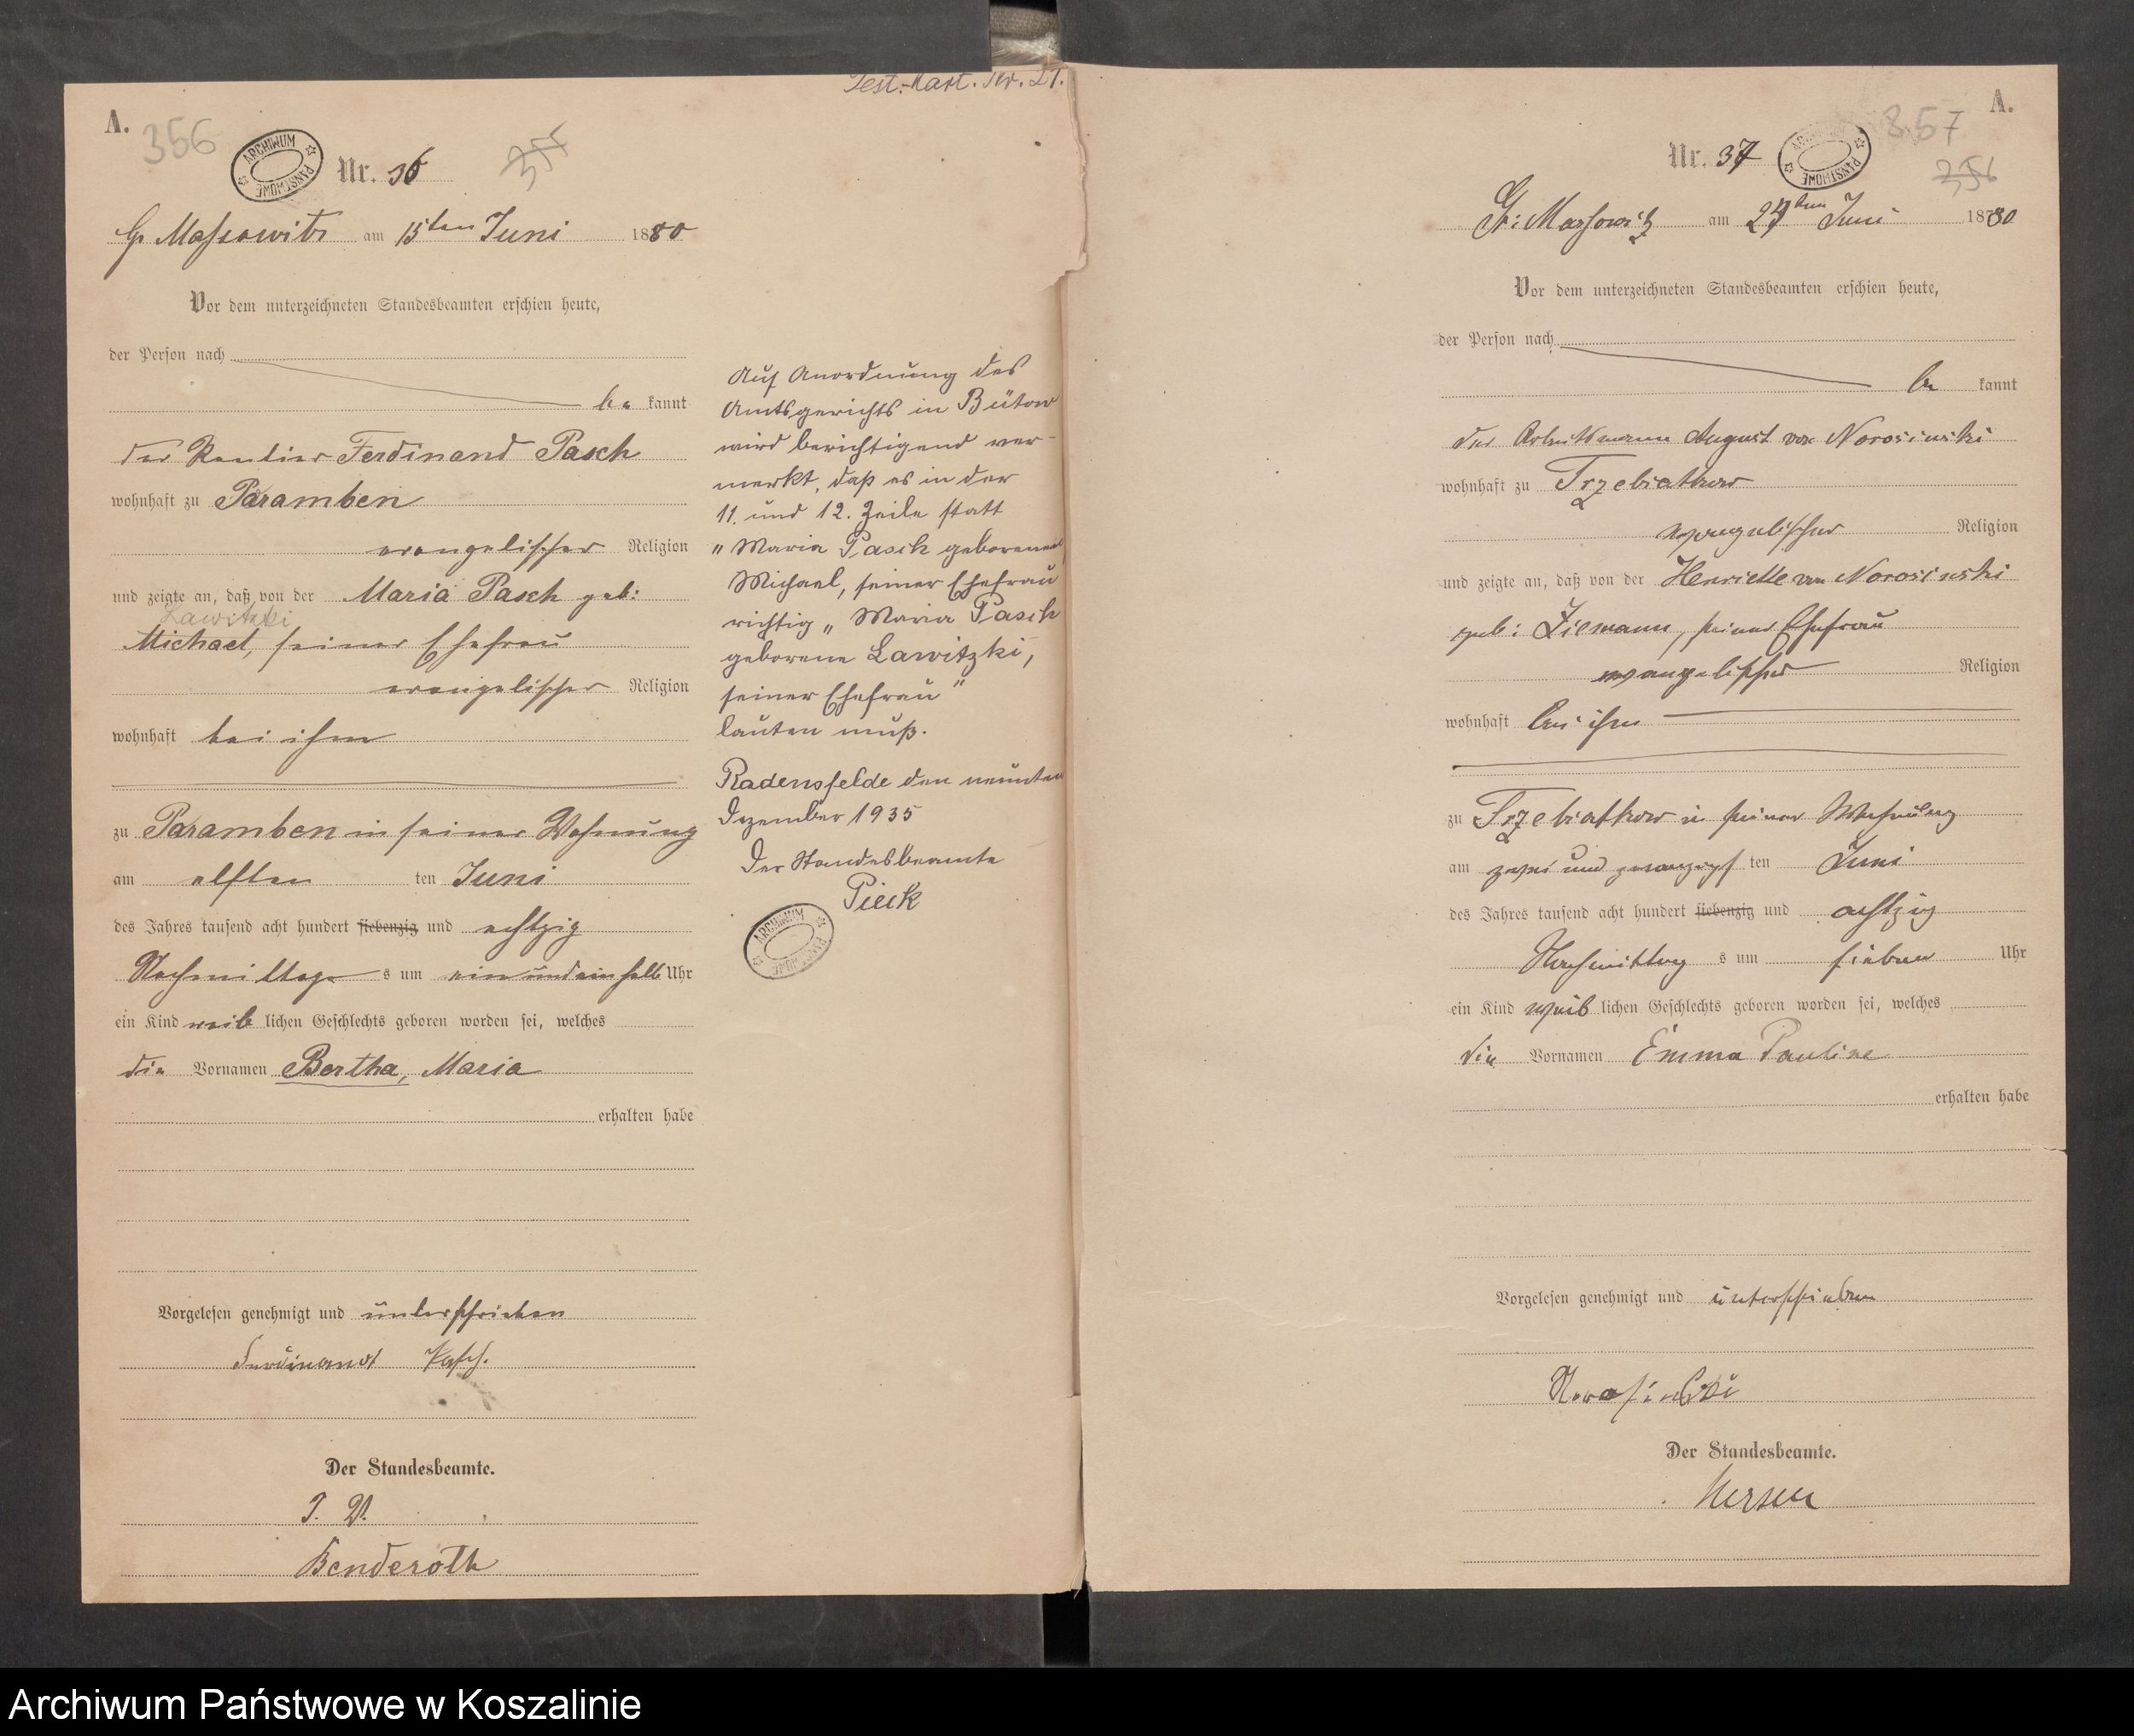 Test.-Kart. Nr. 21.
A.
356
ARCHIWUM PAŃSTWOWE
Nr. 36
355
Gr Massowitz am 15ten Juni 1880
Vor dem unterzeichneten Standesbeamten erschien heute,
der Person nach
be kannt
der Rentier Ferdinand Pasch
wohnhaft zu Paramben
evangelischer Religion
und zeigte an, daß von der Maria Pasch geb:
Lawitzki
Michael, seiner Ehefrau
evangelischer Religion
wohnhaft bei ihm
zu Paramben in seiner Wohnung
am elften ten Juni
des Jahres tausend acht hundert siebenzig und achtzig
Nachmittag s um ein und ein halb Uhr
ein Kind weib lichen Geschlechts geboren worden sei, welches
die Vornamen Bertha, Maria
erhalten habe
Vorgelesen genehmigt und unterschrieben
Ferdinandt Pasch.
Der Standesbeamte.
J. V.
Benderoth
Auf Anordnung des
Amtsgerichts in Bütow
wird berichtigend ver-
merkt, daß es in der
11. und 12. Zeile statt
"Maria Pasch geborenen
Michael, seiner Ehefrau
richtig „Maria Pasch
geborene Lawitzki,
seiner Ehefrau"
lauten muß.
Radensfelde den neunten
Dezember 1935
Der Standesbeamte
Pieck
ARCHIWUM PAŃSTWOWE
A.
357
Nr. 37
ARCHIWUM PAŃSTWOWE
356
Gr: Massowitz am 24ten Juni 18780
Vor dem unterzeichneten Standesbeamten erschien heute,
der Person nach
be kannt
der Arbeitsmann August von Norosinski
wohnhaft zu Trzebiatkow
evangelischer Religion
und zeigte an, daß von der Henriette von Norosinski
geb: Ziemann, seiner Ehefrau
evangelischer Religion
wohnhaft bei ihm
zu Trzebiatkow in seiner Wohnung
am zwei und zwanzigs ten Juni
des Jahres tausend acht hundert siebenzig und achtzig
Nachmittag s um sieben Uhr
ein Kind weib lichen Geschlechts geboren worden sei, welches
die Vornamen Emma Pauline
erhalten habe
Vorgelesen genehmigt und unterschrieben
Norosinski
Der Standesbeamte.
Archiwum Państwowe w Koszalinie